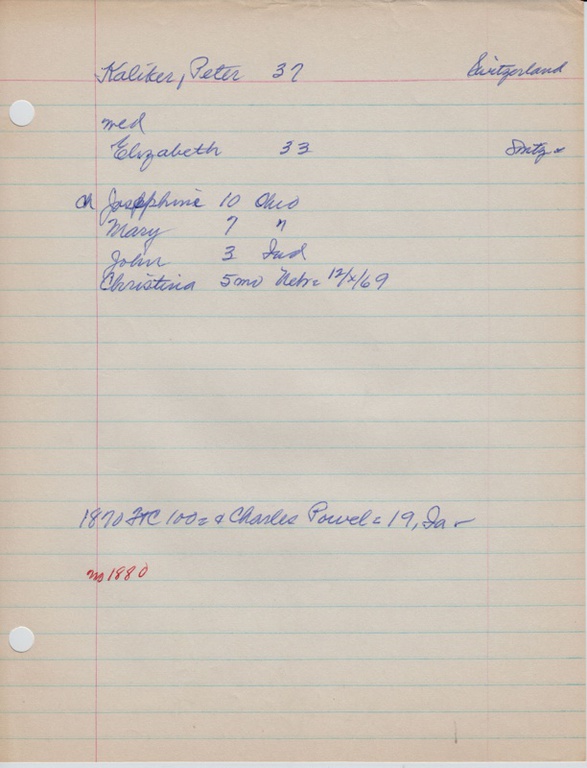 Kaliker, Peter 37 Switzerland
med
Elizabeth 33 Switz
ch Josephine 10 Ohio
Mary 7 "
John 3 Ind
Christina 5 mo Nebr 12/x/69
1870 100 & Charles Powel 19, Ia
no 1880